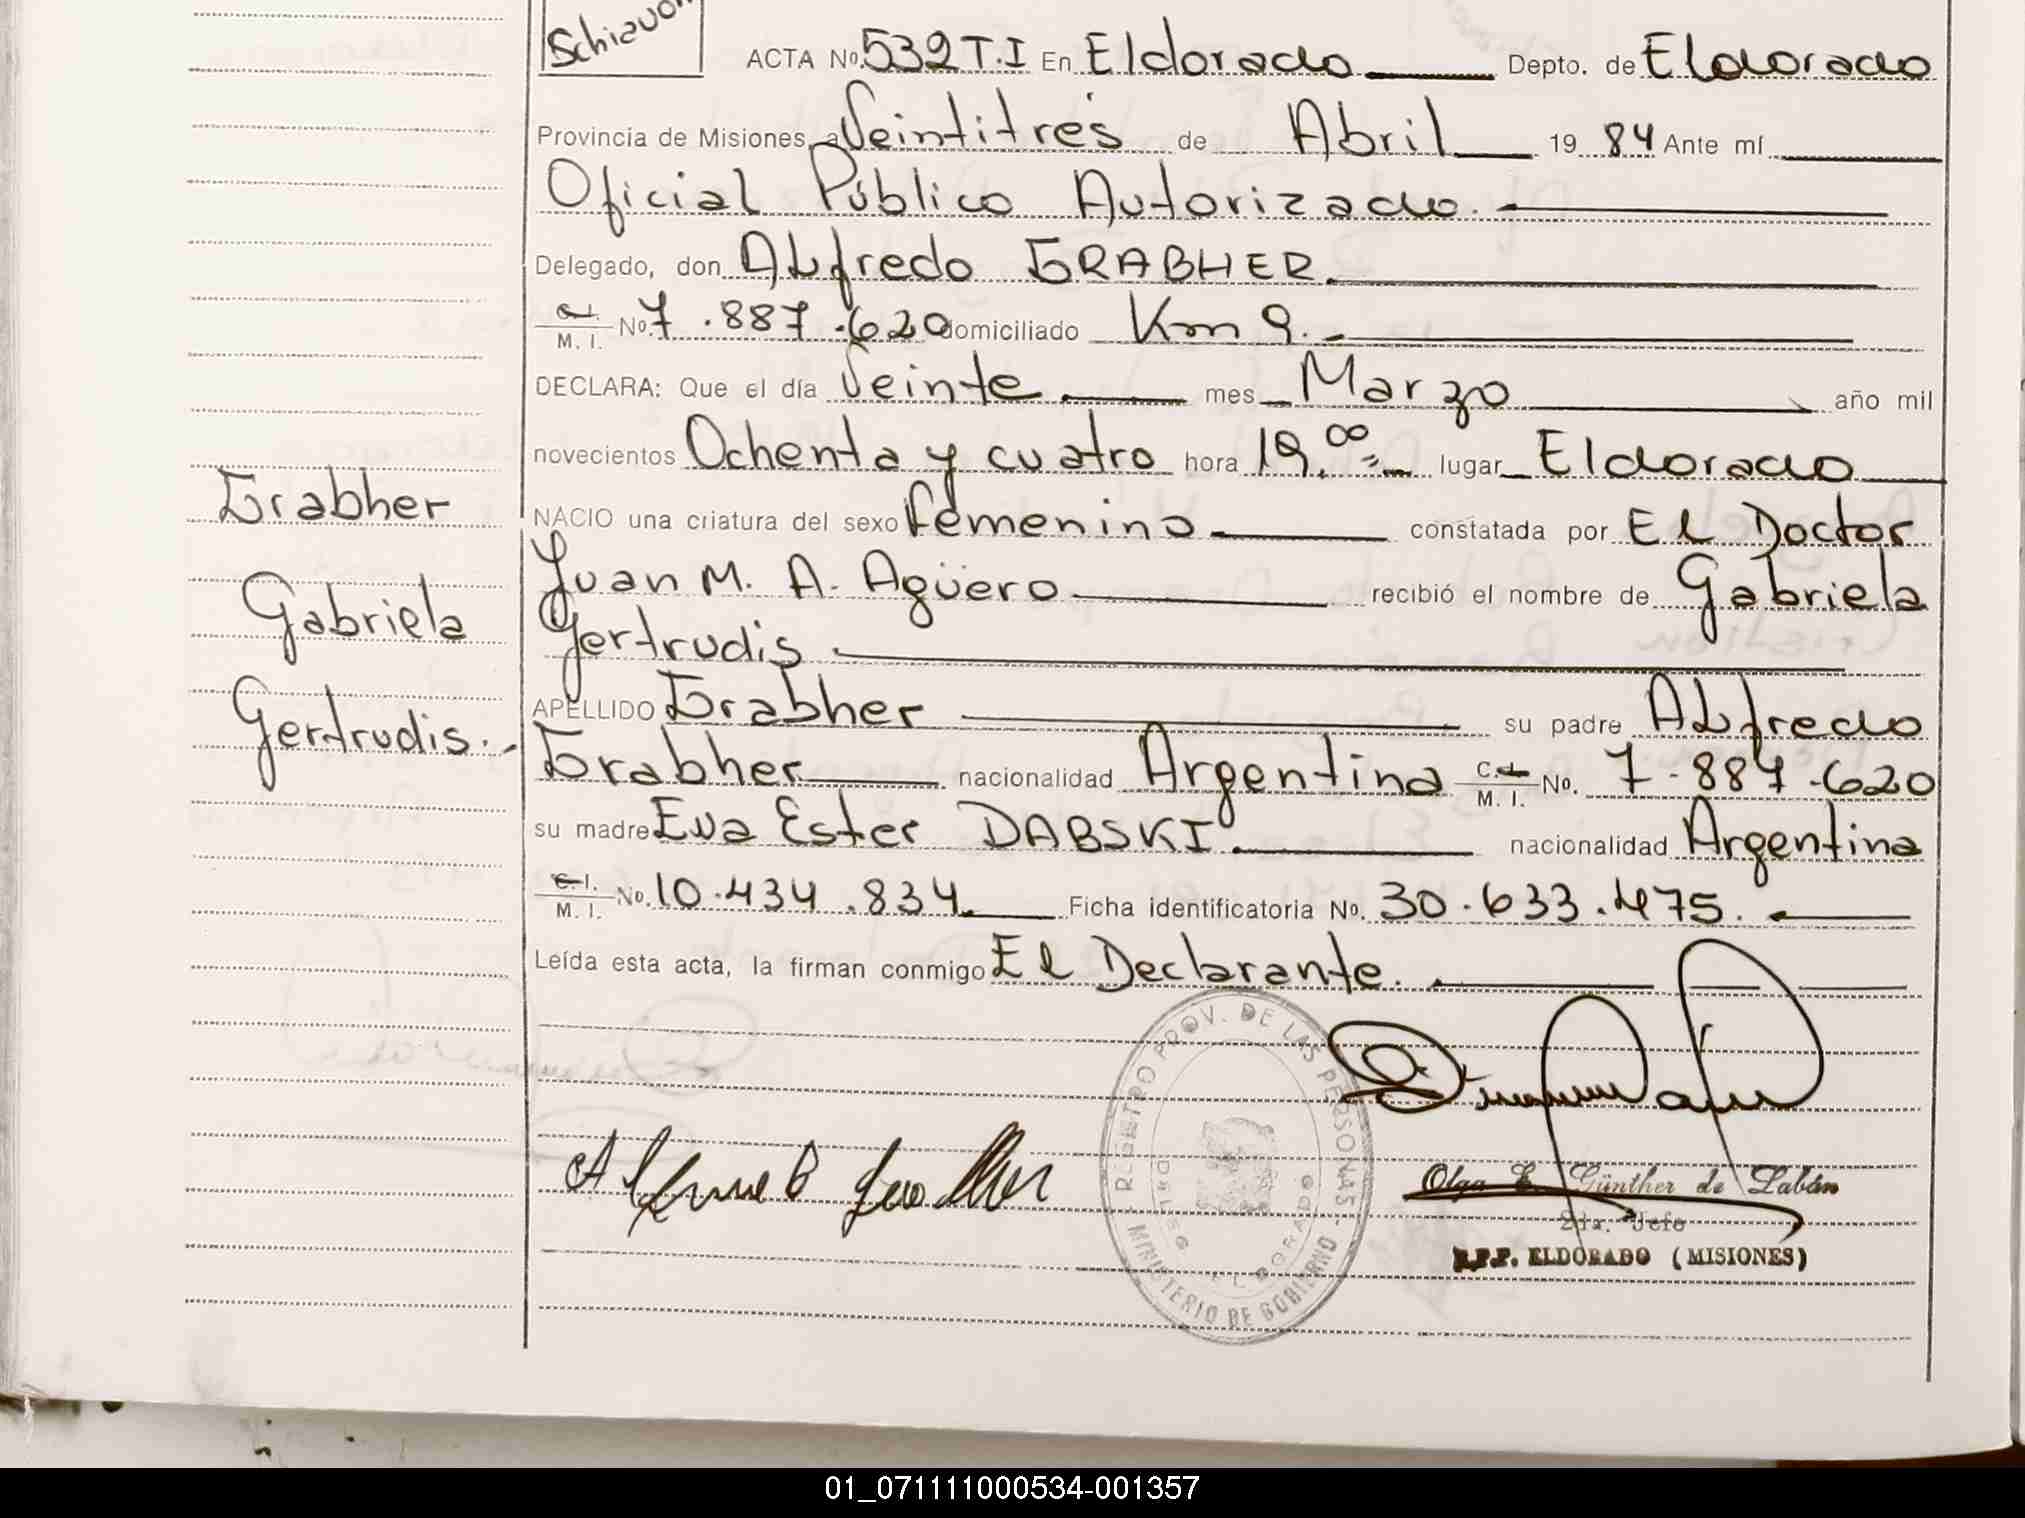 Schiavon
ACTA Nº 532 T.I En Eldorado Depto. de Eldorado
Provincia de Misiones, a Veintitrés de Abril 19 84 Ante mí
Oficial Público Autorizado.
Delegado, don Alfredo GRABHER.
C.I. M. I. Nº. 7.887.620 domiciliado Km 9.
DECLARA: Que el día Veinte mes Marzo año mil
novecientos Ochenta y cuatro hora 19.00 lugar Eldorado
NACIO una criatura del sexo femenino constatada por El Doctor
Juan M. A. Agüero recibió el nombre de Gabriela
Gertrudis
APELLIDO Grabher su padre Alfredo
Grabher nacionalidad Argentina C.I. M. I. No. 7.887.620
su madre Eva Ester DABSKI nacionalidad Argentina
C.I. M. I. No. 10.434.834 Ficha identificatoria No. 30.633.475.
Leída esta acta, la firman conmigo El Declarante.
Grabher
Gabriela
Gertrudis.
REGISTRO PROV. DE LAS PERSONAS
MINISTERIO DE GOBIERNO
ELDORADO
Olga E. Günther de Labán
2da. Jefe
R.P.P. ELDORADO (MISIONES)
01_071111000534-001357